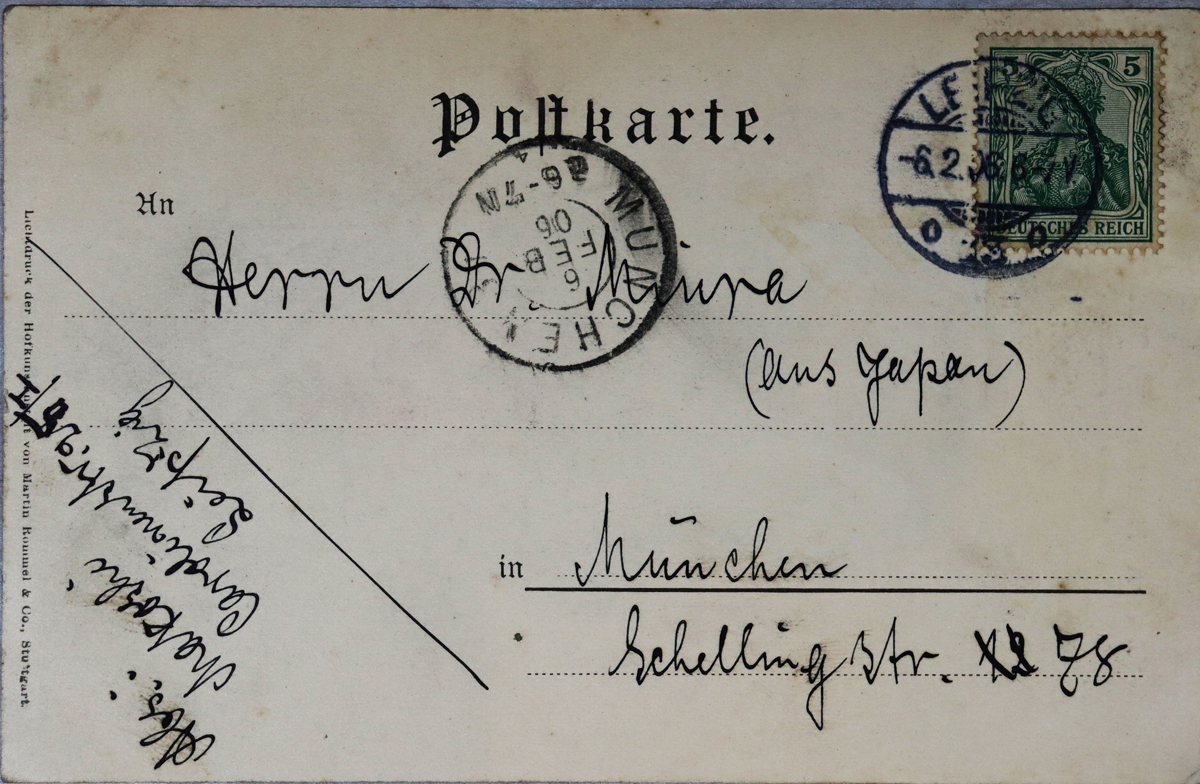 Postkarte.
5
DEUTSCHES REICH
LEIPZIG
-6.2.06.6-7V.
13
MÜNCHEN
6 FEB 06
NM 6-7
An
Herrn Dr Miura
(aus Japan)
in München
Schelling Str. 78
Lichtdruck der Hofkunstanstalt von Martin Rommel & Co., Stuttgart.
Abs:
Carolinenstr. 25
Leipzig